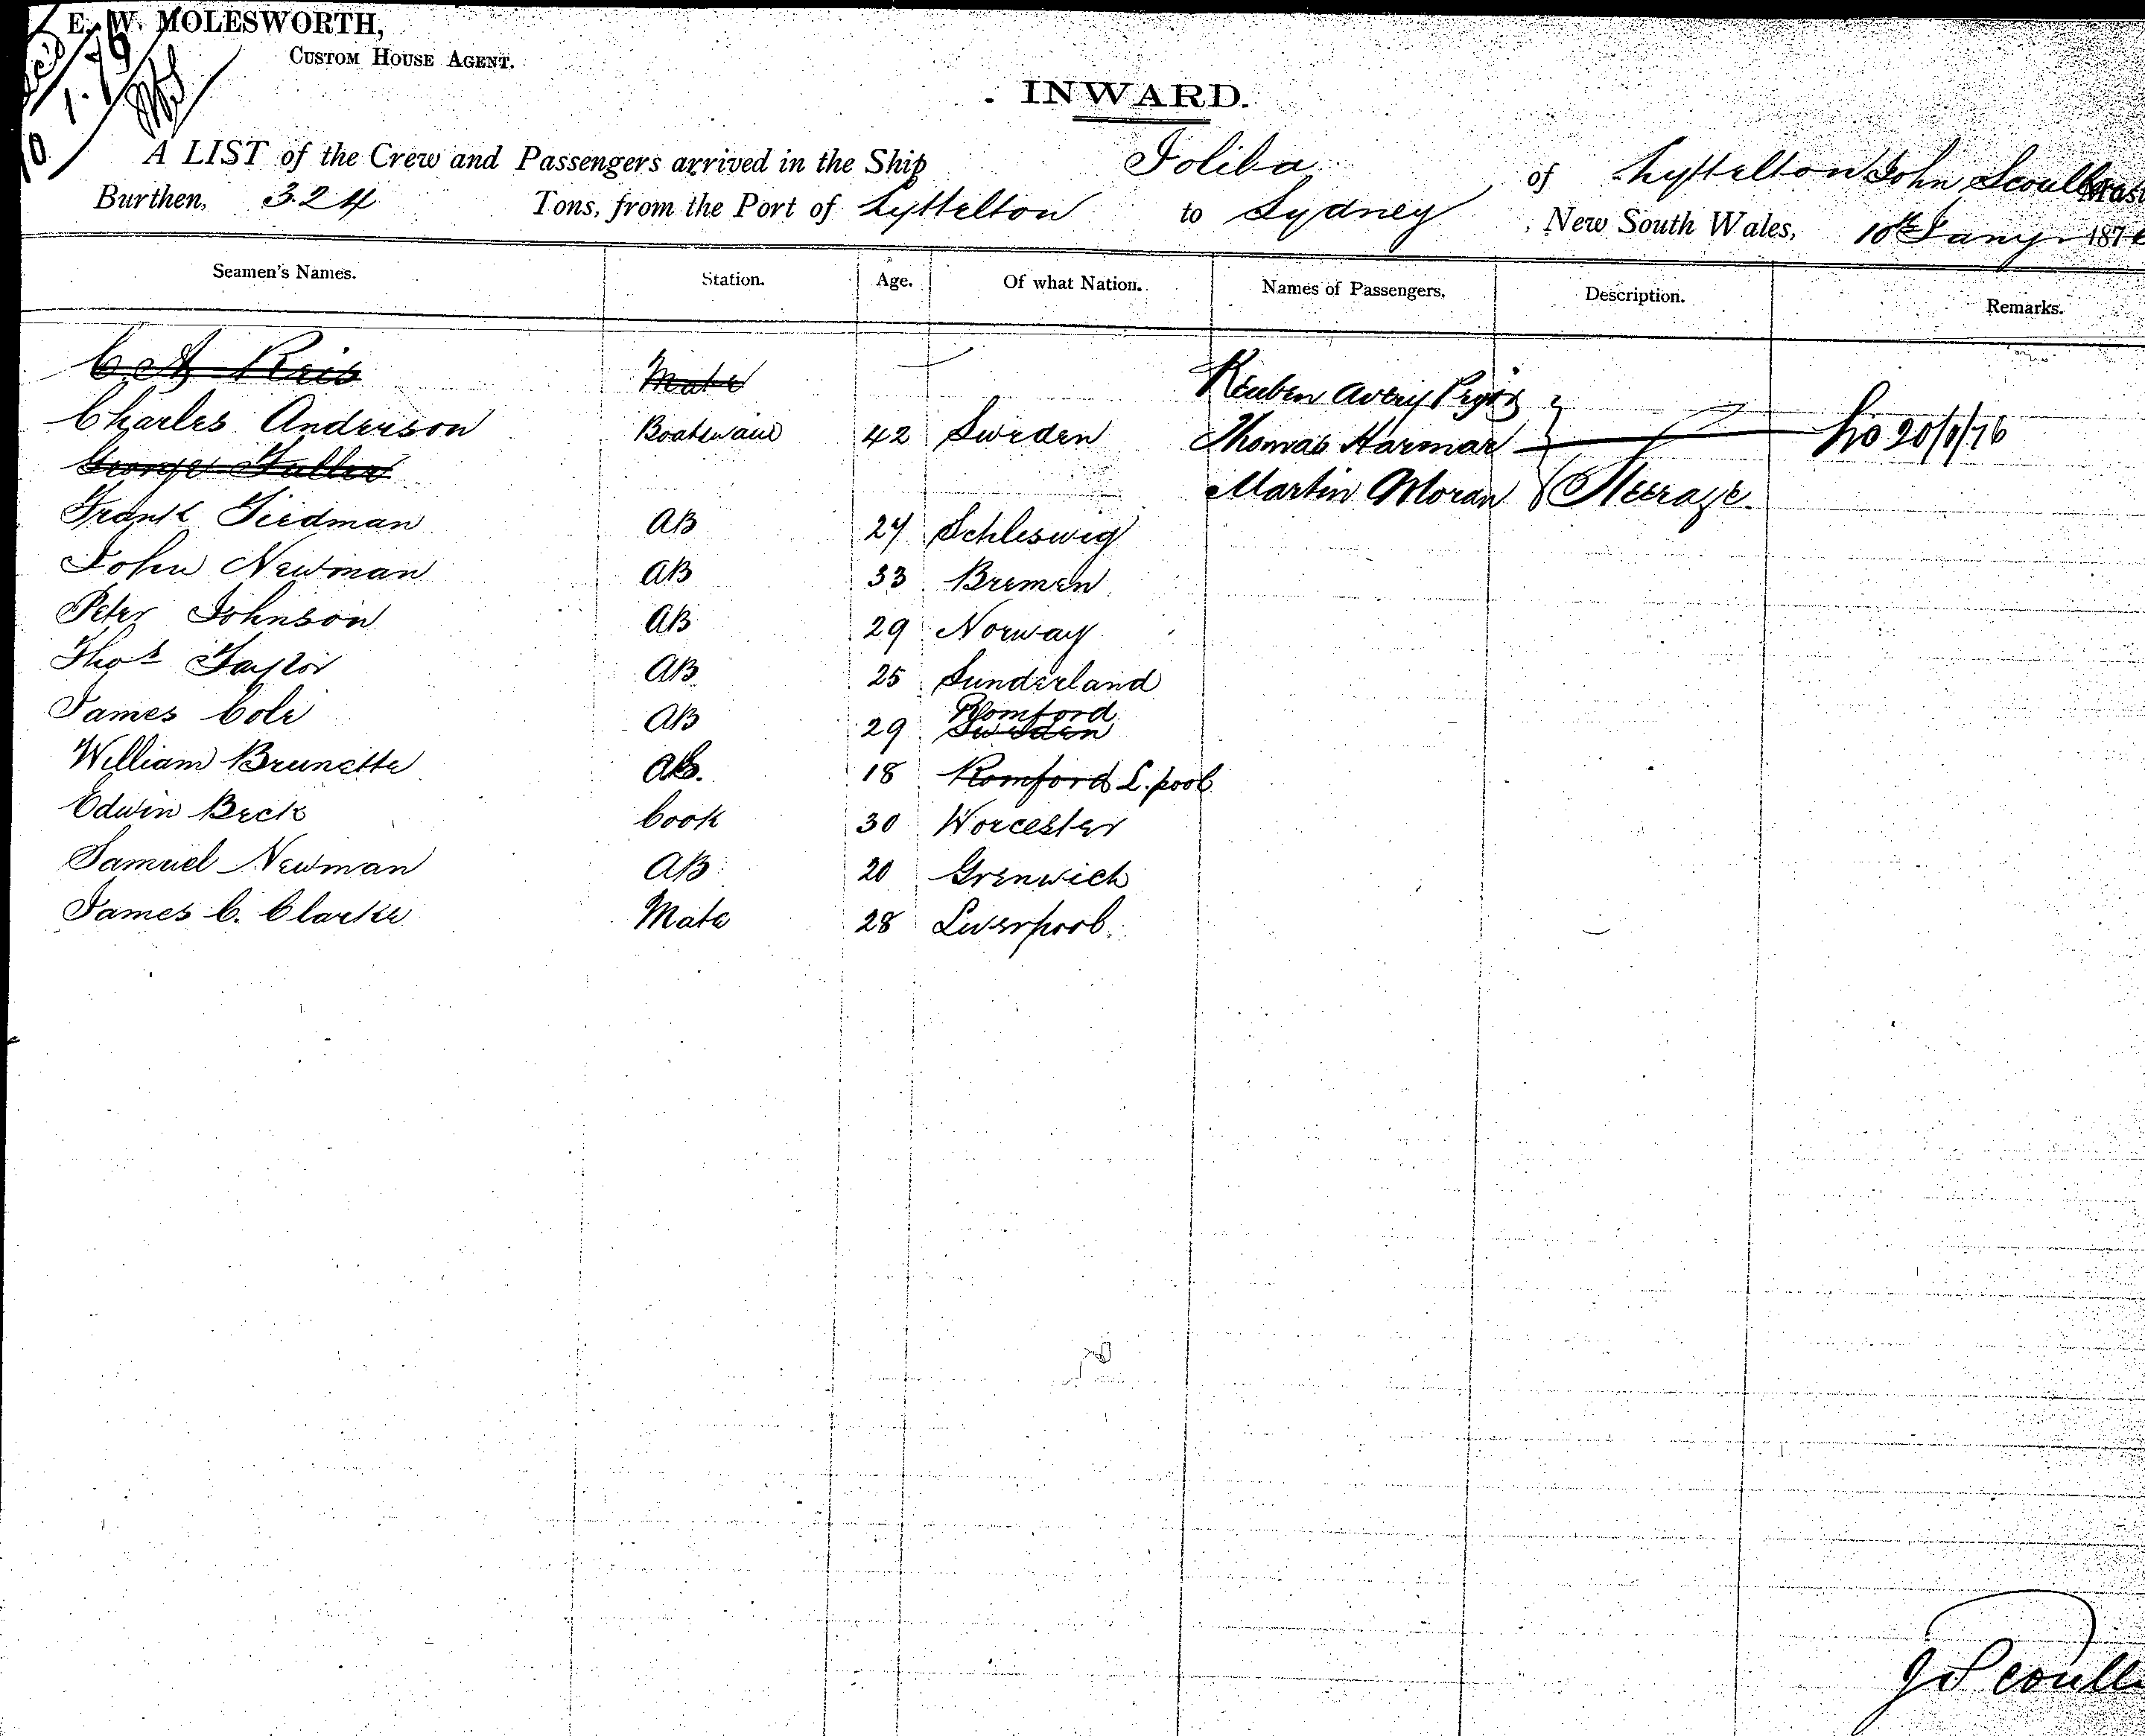 E. W. MOLESWORTH,
CUSTOM HOUSE AGENT.
INWARD.
A LIST of the Crew and Passengers arrived in the Ship Joliba of Lyttelton John Scoullar Mast
Burthen, 324 Tons, from the Port of Lyttelton to Sydney, New South Wales, 10th Jany 1876
Seamen's Names. Station. Age. Of what Nation. Names of Passengers. Description. Remarks.
Mate Reuben Avery
Charles Anderson Boatswain 42 Sweden Thomas Harmar 20/1/76
George Fuller Martin Moran Steerage.
Frank Tiedman AB 27 Schleswig
John Newman AB 33 Bremen
Peter Johnson AB 29 Norway
Thos Taylor AB 25 Sunderland
James Cole AB 29 Romford Sweden
William Brunette AB. 18 Romford L.pool
Edwin Beck Cook 30 Worcester
Samuel Newman AB 20 Grenwich
James C. Clarke Mate 28 Liverpool.